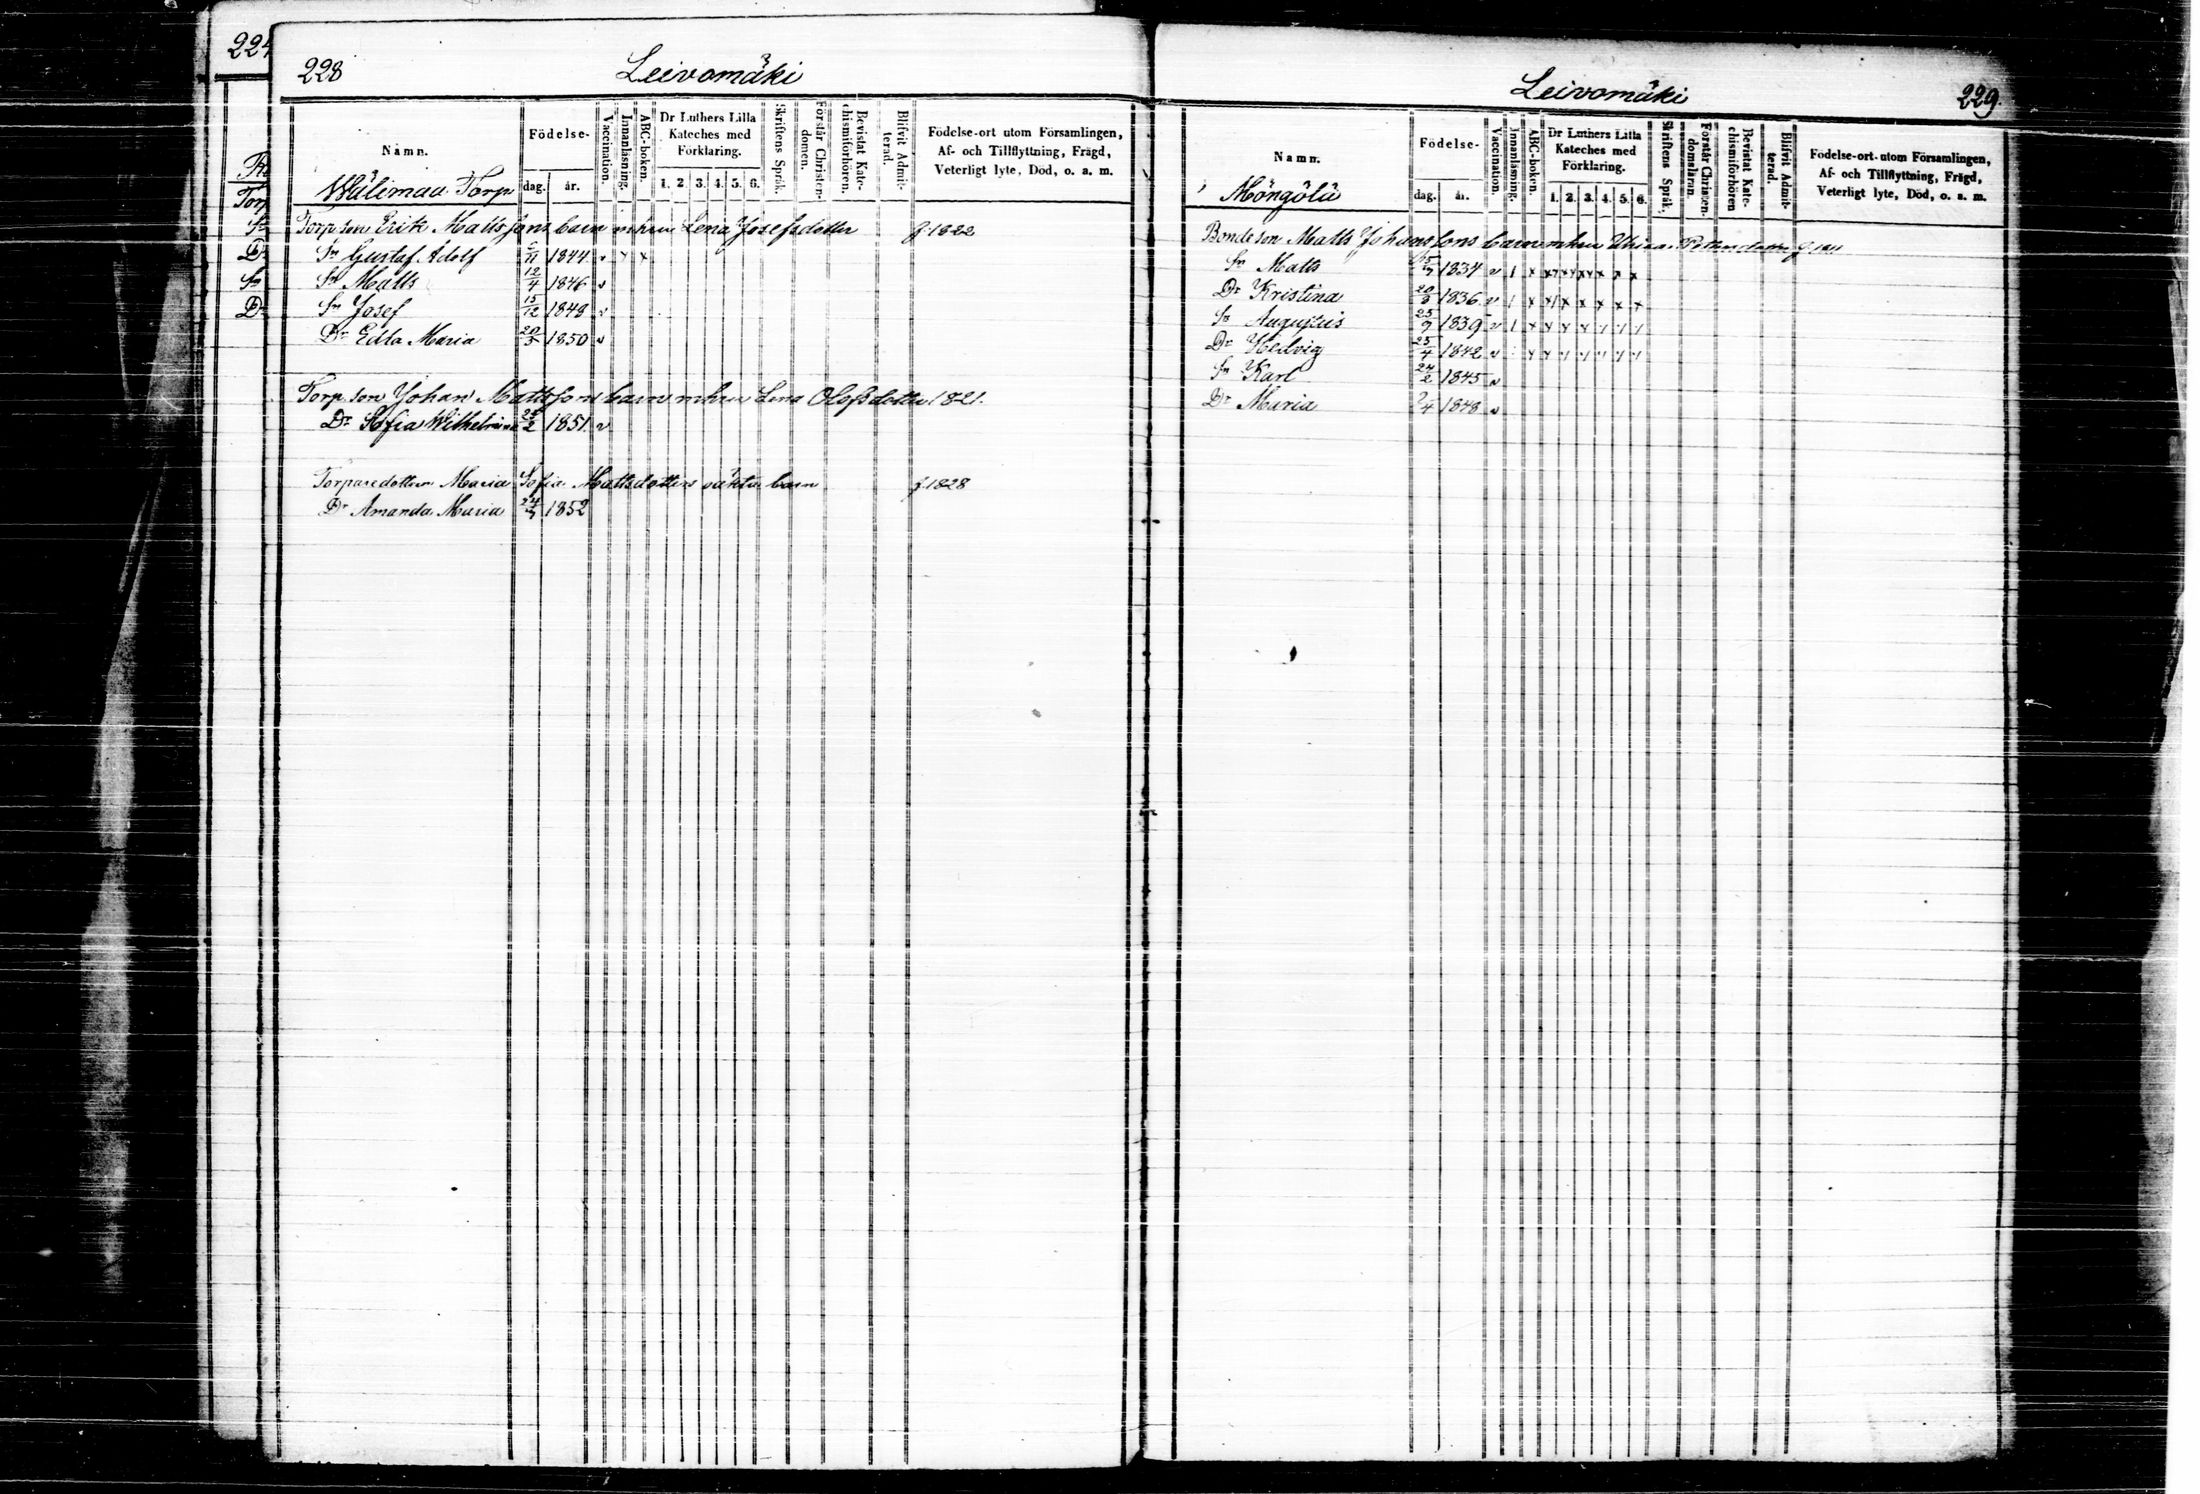 224
Torp
Sn
Dr
Sn
Dr
228
Leivomäki
Namn.
Födelse-
dag. år.
Vaccination.
Innanläsning.
ABC-boken.
Dr Luthers Lilla
Kateches med
Förklaring.
1. 2. 3. 4. 5. 6.
Skriftens Språk.
Förstår Christen-
domen.
Bevistat Kate-
chismiförhören.
Blifvit Admit-
terad.
Födelse-ort utom Församlingen,
Af- och Tillflyttning, Frägd,
Veterligt lyte, Död, o. a. m.
Wälimaa Torp
Torp son Erik Mattssons barn m hru Lena Josefsdotter f. 1822
Sn Gustaf Adolf /11 1844 v x x
Sn Matts 12/4 1846 v
Sn Josef 15/12 1848 v
Dr Edla Maria 20/5 1850 v
Torp son Johan Mattssons barn m hru Lena Olofsdotter 1821.
Dr Sofia Wilhelmina 22/2 1851 v
Torparedottern Maria Sofia Mattsdotters oäkta barn f. 1828
Dr Amanda Maria 24/7 1852
Leivomäki
229.
Namn.
Födelse-
dag. år.
Vaccination.
Innanläsning.
ABC-boken.
Dr Luthers Lilla
Kateches med
Förklaring.
1. 2. 3. 4. 5. 6.
Skriftens Språk.
Förstår Christen-
domsläran.
Bevistat Kate-
chismiförhören
Blifvit Admit-
terad.
Födelse-ort utom Församlingen,
Af- och Tillflyttning, Frägd,
Veterligt lyte, Död, o. a. m.
Möngölä
Bondeson Matts Johanssons barn m hru Ulrica Pettersdotter f. 1811
Sn Matts 15/7 1834 v
Dr Kristina 20/3 1836 v
Sn Augustus 25/7 1839 v
Dr Hedvig 25/4 1842 v
Sn Karl 24/2 1845 v
Dr Maria 2/4 1848 v